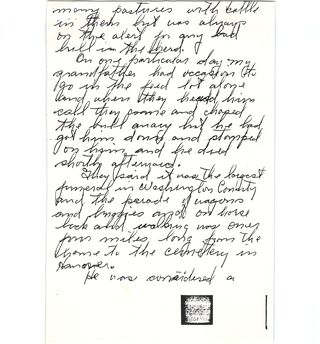 many pastures with cattle
in them but was always
on the alert for any bad
bull in the herd.
On one particular day my
grandfather had occasion to
go in the feed lot alone
and when they heard him
call they came and chased
the bull away but he had
got him down and stomped
on him, and he died
shortly afterwards.
They said it was the largest
funeral in Washington County
and the parade of wagons
and buggies and on horse
back and walking was over
four miles long from the
home to the cemetery in
Hanover.
He was considered a